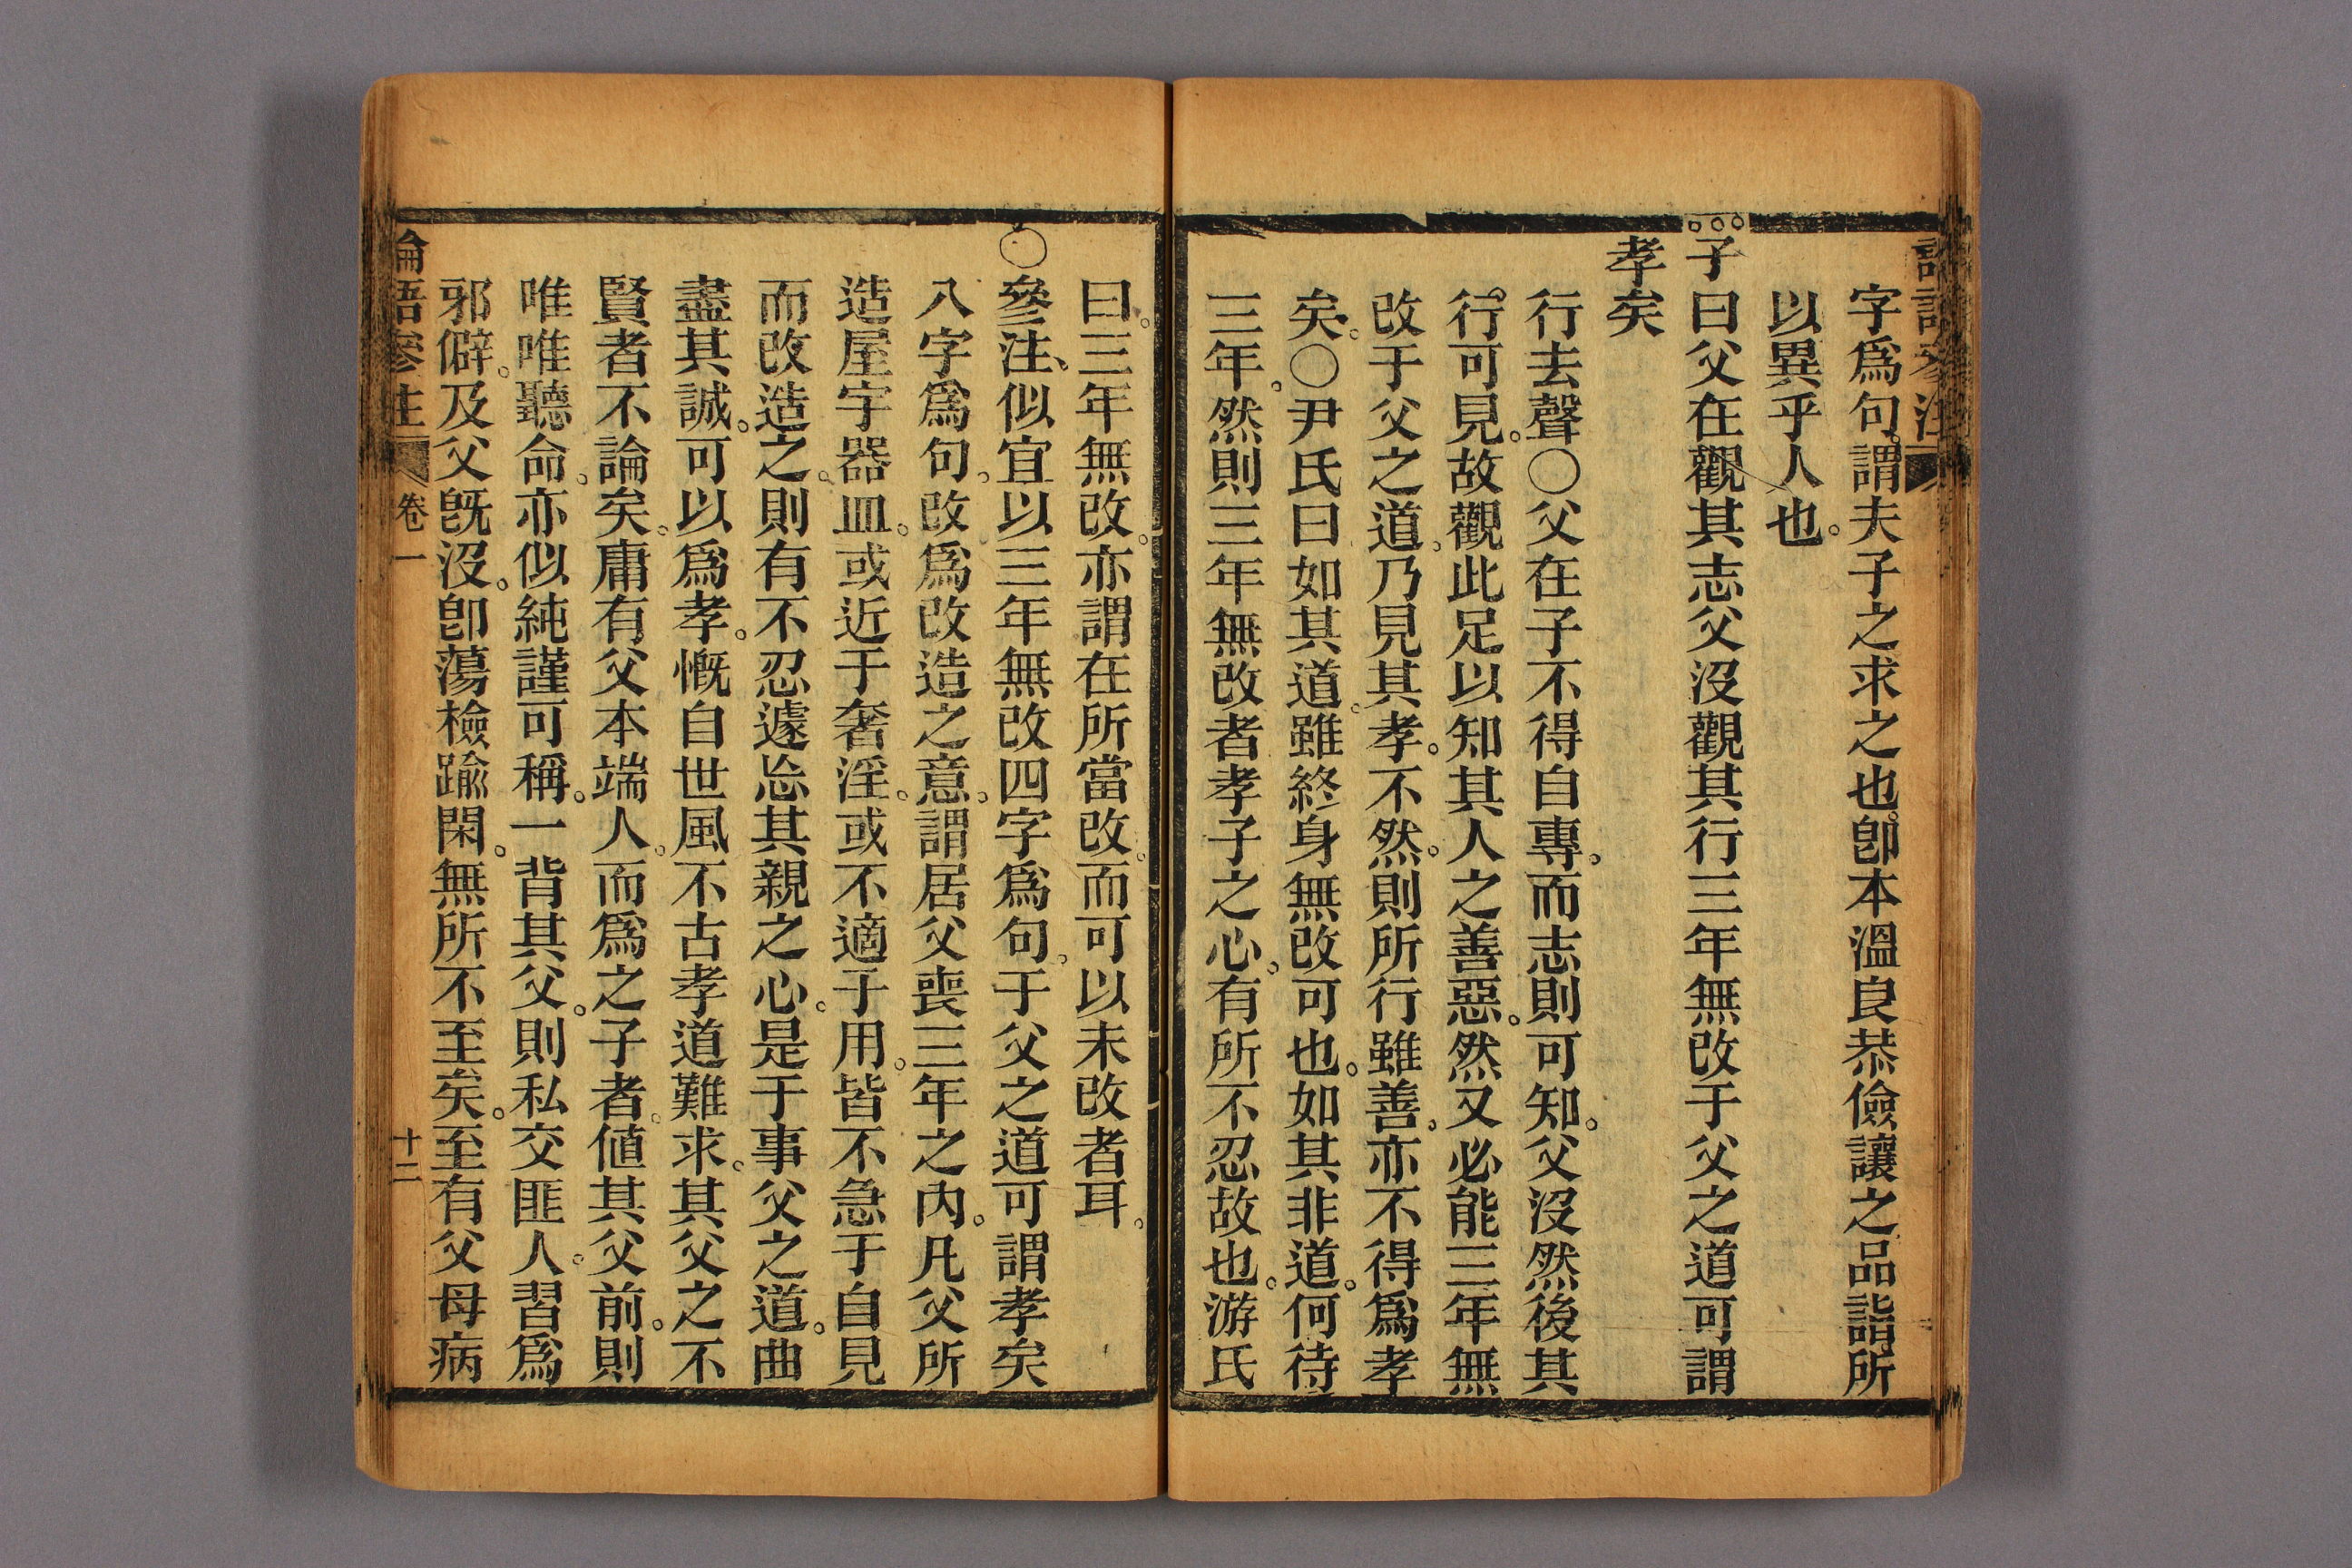 字爲句。謂夫子之求之也。卽本溫良恭儉讓之品詣。所
以異乎人也。
子曰父在觀其志父沒觀其行三年無改于父之道可謂
孝矣
行去聲〇父在子不得自專。而志則可知。父沒然後其
行可見。故觀此足以知其人之善惡。然又必能三年無
改于父之道。乃見其孝。不然。則所行雖善。亦不得爲孝
矣。〇尹氏曰如其道。雖終身無改可也。如其非道。何待
三年。然則三年無改者孝子之心。有所不忍故也。游氏
曰。三年無改。亦謂在所當改。而可以未改者耳。
〇參注、似宜以三年無改四字爲句。于父之道可謂孝矣
八字爲句。改爲改造之意。謂居父喪三年之內。凡父所
造屋宇器皿。或近于奢淫。或不適于用。皆不急于自見
而改造之。則有不忍遽忘其親之心。是于事父之道。曲
盡其誠。可以爲孝。慨自世風不古孝道難求。其父之不
賢者不論矣。庸有父本端人。而爲之子者。値其父前。則
唯唯聽命。亦似純謹可稱。一背其父。則私交匪人。習爲
邪僻。及父旣沒。卽蕩檢踰閑。無所不至矣。至有父母病
論語參注 卷一 十二